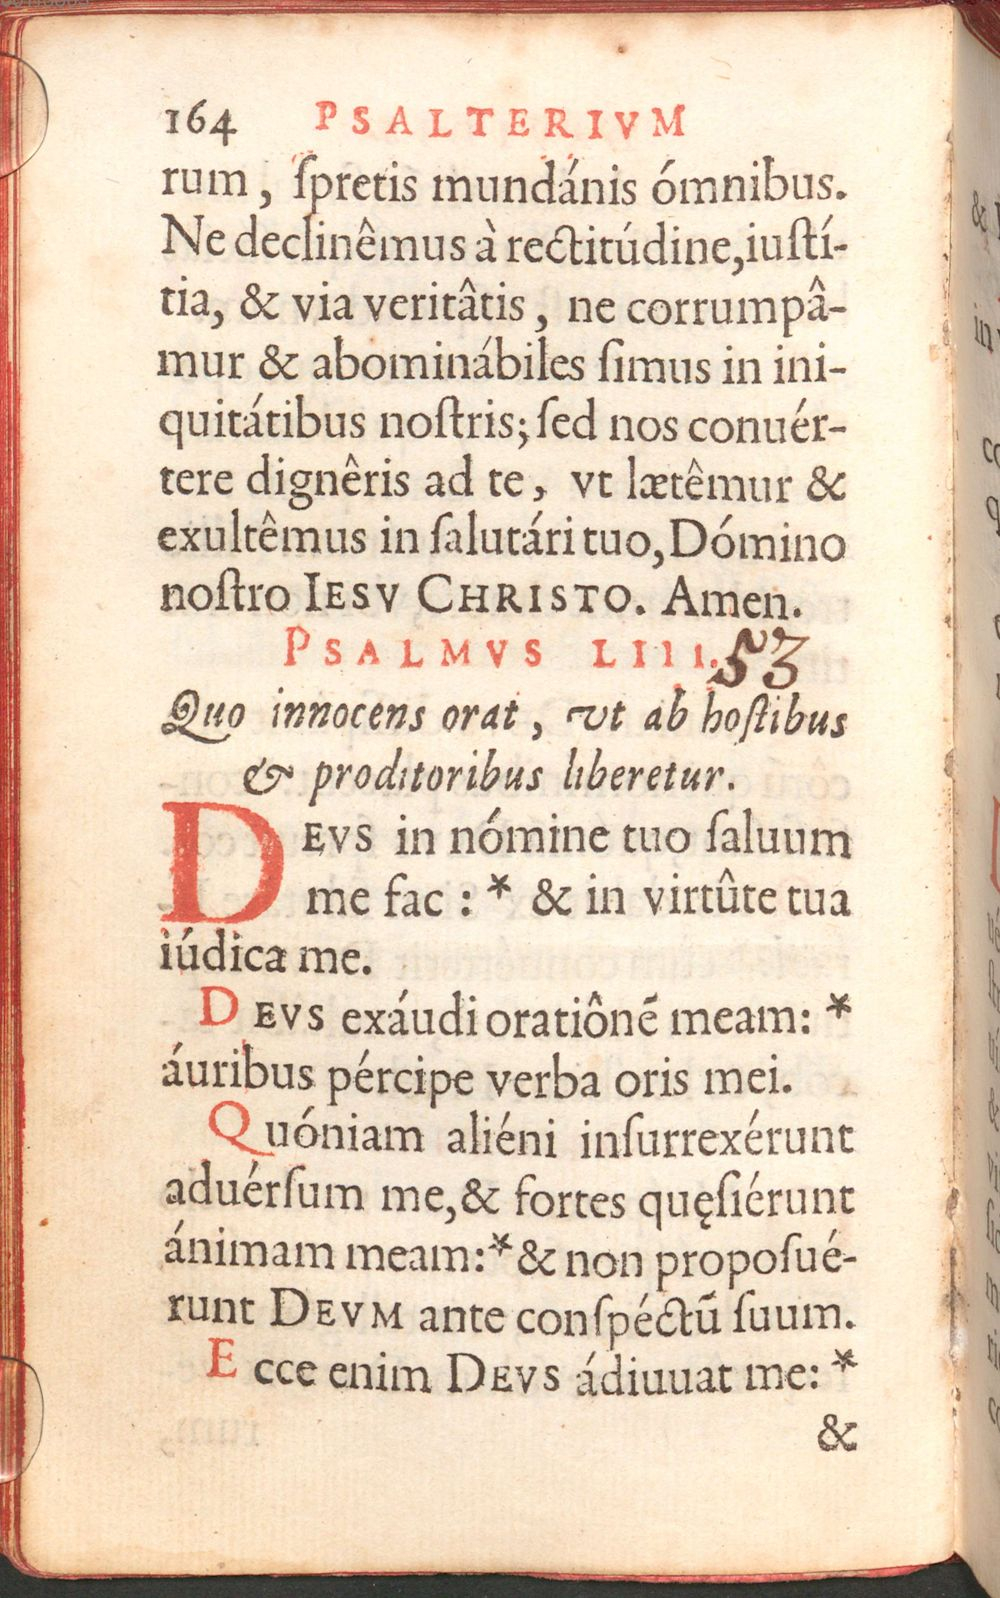 164 PSALTERIVM
rum, ſpretis mundánis ómnibus.
Ne declinêmus à rectitúdine,iuſtí-
tia, & via veritâtis, ne corrumpâ-
mur & abominábiles ſimus in ini-
quitátibus noſtris; ſed nos conuér-
tere dignêris ad te, vt lætêmur &
exultêmus in ſalutári tuo,Dómino
noſtro IESV CHRISTO. Amen.
PSALMVS LIII. 53
Quo innocens orat, vt ab hoſtibus
& proditoribus liberetur.
DEVS in nómine tuo ſaluum
me fac : * & in virtûte tua
iúdica me.
DEVS exáudi oratiônẽ meam: *
áuribus pércipe verba oris mei.
Quóniam aliéni inſurrexérunt
aduérſum me,& fortes quęſiérunt
ánimam meam:* & non propoſué-
runt DEVM ante conſpéctũ ſuum.
Ecce enim DEVS ádiuuat me: *
&